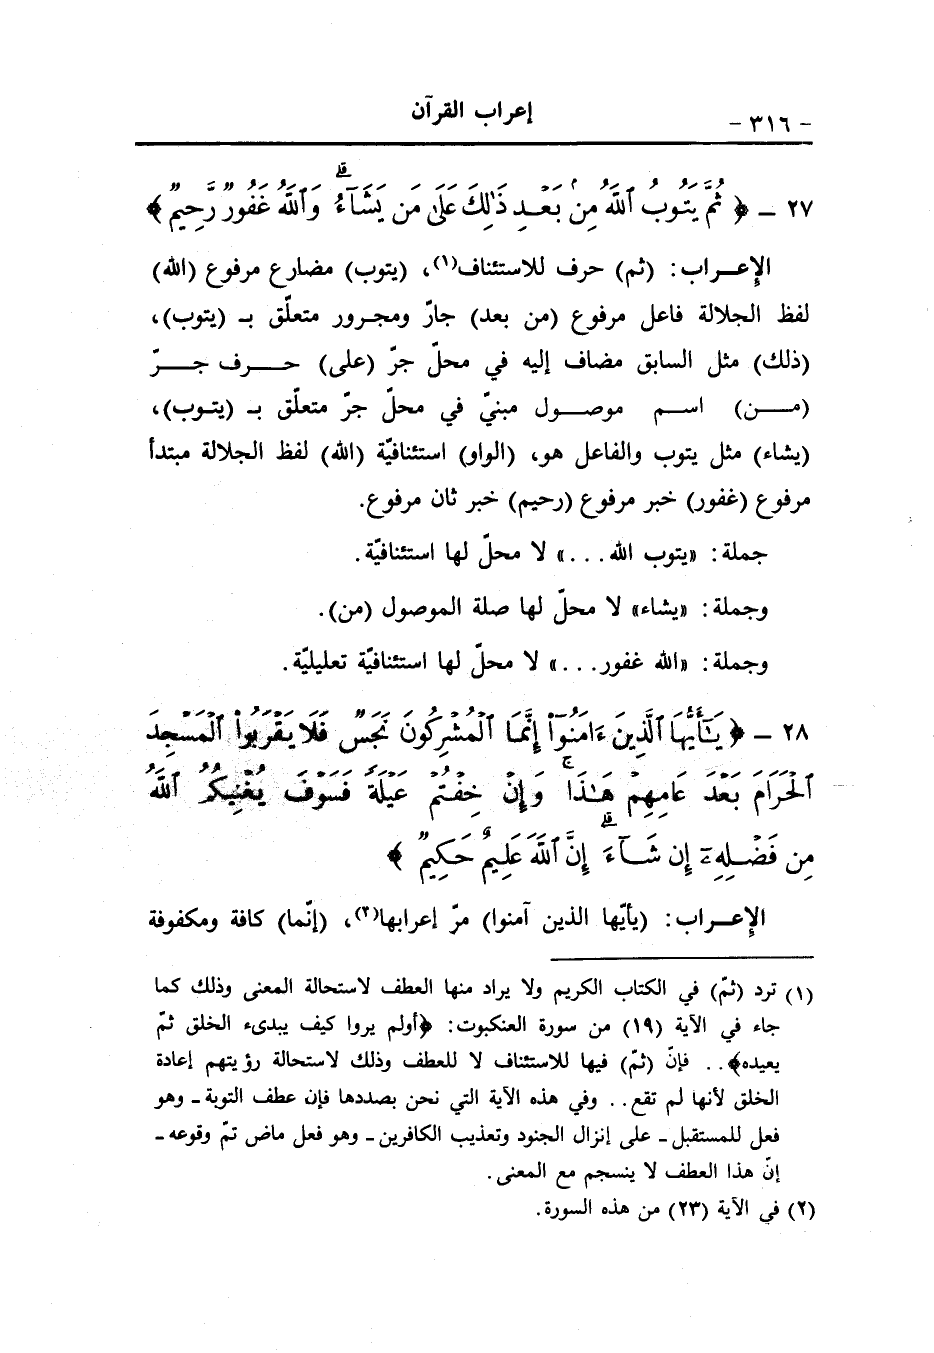 - ٣١٦ -
إعراب القرآن
٢٧ ـ ﴿ ثُمَّ يَتُوبُ ٱللَّهُ مِنۢ بَعْدِ ذَٰلِكَ عَلَىٰ مَن يَشَآءُ ۗ وَٱللَّهُ غَفُورٌ رَّحِيمٌ ﴾
الإعـراب : (ثم) حرف للاستئناف(١)، (يتوب) مضارع مرفوع (الله)
لفظ الجلالة فاعل مرفوع (من بعد) جارّ ومجرور متعلّق بـ (يتوب)،
(ذلك) مثل السابق مضاف إليه في محلّ جرّ (على) حـرف جـرّ
(مـن) اسـم موصـول مبنيّ في محلّ جرّ متعلّق بـ (يتـوب)،
(يشاء) مثل يتوب والفاعل هو، (الواو) استئنافيّة (الله) لفظ الجلالة مبتدأ
مرفوع (غفور) خبر مرفوع (رحيم) خبر ثان مرفوع.
جملة : «يتوب الله . . .» لا محلّ لها استئنافيّة .
وجملة : «يشاء» لا محلّ لها صلة الموصول (من).
وجملة : «الله غفور . . .» لا محلّ لها استئنافيّة تعليليّة .
٢٨ ـ ﴿ يَـٰٓأَيُّهَا ٱلَّذِينَ ءَامَنُوٓا۟ إِنَّمَا ٱلْمُشْرِكُونَ نَجَسٌ فَلَا يَقْرَبُوا۟ ٱلْمَسْجِدَ
ٱلْحَرَامَ بَعْدَ عَامِهِمْ هَـٰذَا ۚ وَإِنْ خِفْتُمْ عَيْلَةً فَسَوْفَ يُغْنِيكُمُ ٱللَّهُ
مِن فَضْلِهِۦٓ إِن شَآءَ ۗ إِنَّ ٱللَّهَ عَلِيمٌ حَكِيمٌ ﴾
الإعـراب : (يأيّها الذين آمنوا) مرّ إعرابها(٢)، (إنّما) كافة ومكفوفة
(١) ترد (ثمّ) في الكتاب الكريم ولا يراد منها العطف لاستحالة المعنى وذلك كما
جاء في الآية (١٩) من سورة العنكبوت : ﴿أولم يروا كيف يبدىء الخلق ثمّ
يعيده﴾ . . فإنّ (ثمّ) فيها للاستئناف لا للعطف وذلك لاستحالة رؤيتهم إعادة
الخلق لأنها لم تقع . . وفي هذه الآية التي نحن بصددها فإن عطف التوبة ـ وهو
فعل للمستقبل ـ على إنزال الجنود وتعذيب الكافرين ـ وهو فعل ماض تمّ وقوعه ـ
إنّ هذا العطف لا ينسجم مع المعنى .
(٢) في الآية (٢٣) من هذه السورة .